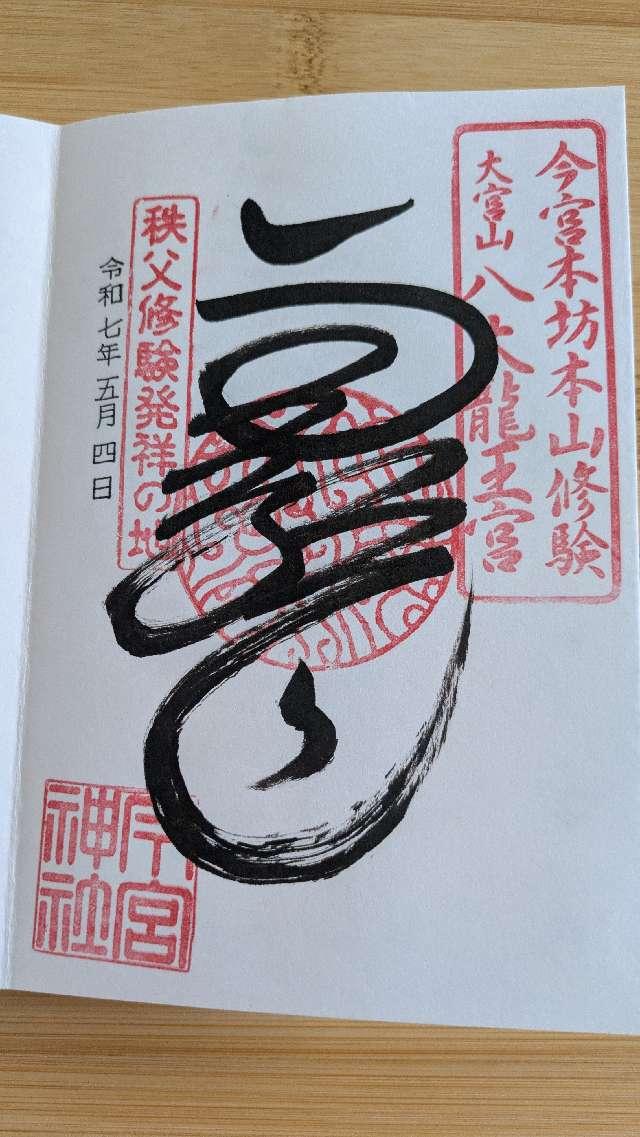 今宮本坊本山修験
大宮山八大龍王宮
秩父修験発祥の地
令和七年五月四日
今宮
神社